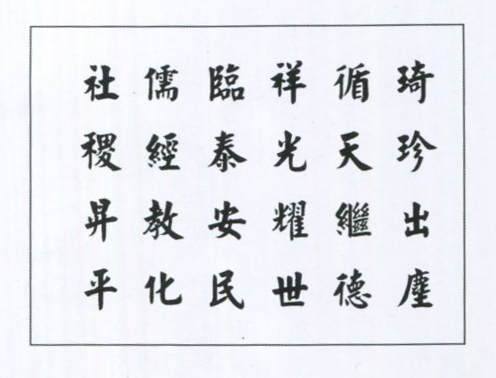 琦珍出塵
循天繼德
祥光耀世
臨泰安民
儒經教化
社稷昇平